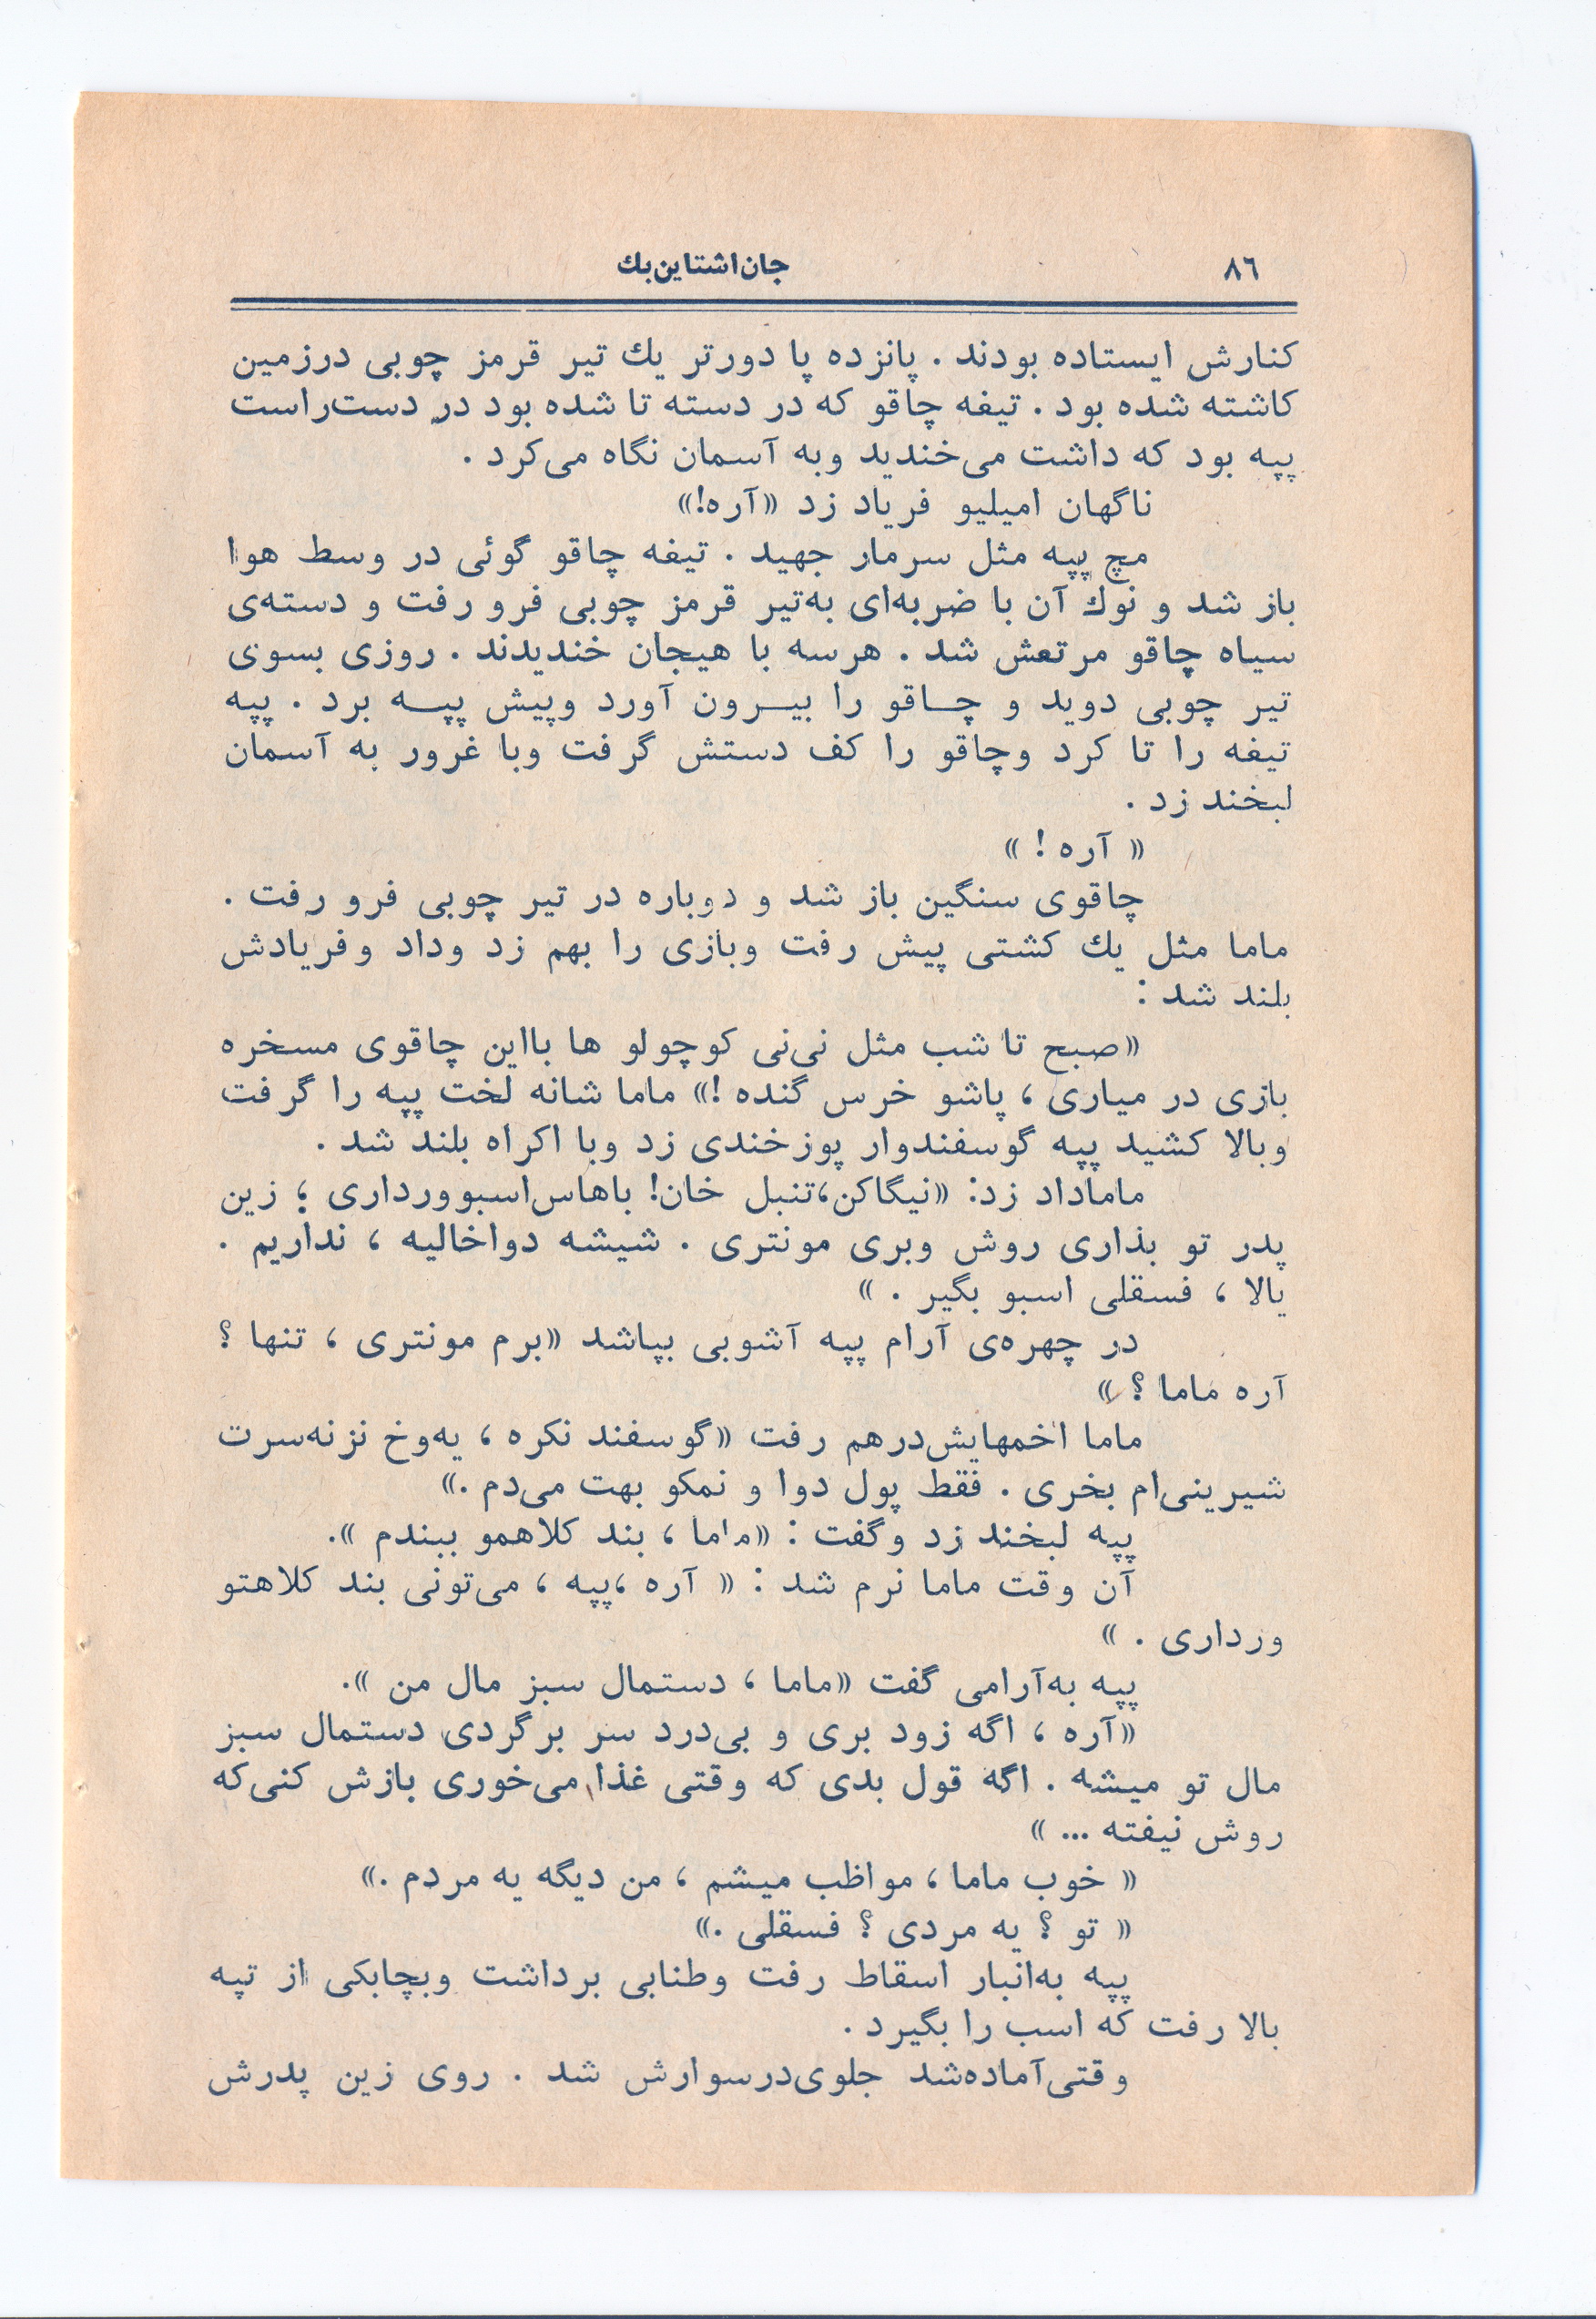 ۸٦
جان‌اشتاین‌بك
کنارش ایستاده بودند . پانزده پا دورتر یك تیر قرمز چوبی درزمین
کاشته شده بود . تیغه چاقو که در دسته تا شده بود در دست‌راست
پپه بود که داشت می‌خندید وبه آسمان نگاه می‌کرد .
ناگهان امیلیو فریاد زد «آره!»
مچ پپه مثل سرمار جهید . تیغه چاقو گوئی در وسط هوا
باز شد و نوك آن با ضربه‌ای به‌تیر قرمز چوبی فرو رفت و دسته‌ی
سیاه چاقو مرتعش شد . هرسه با هیجان خندیدند . روزی بسوی
تیر چوبی دوید و چاقو را بیرون آورد وپیش پپه برد . پپه
تیغه را تا کرد وچاقو را کف دستش گرفت وبا غرور به آسمان
لبخند زد .
« آره ! »
چاقوی سنگین باز شد و دوباره در تیر چوبی فرو رفت .
ماما مثل یك کشتی پیش رفت وبازی را بهم زد وداد وفریادش
بلند شد :
«صبح تا شب مثل نی‌نی کوچولو ها بااین چاقوی مسخره
بازی در میاری ، پاشو خرس گنده !» ماما شانه لخت پپه را گرفت
وبالا کشید پپه گوسفندوار پوزخندی زد وبا اکراه بلند شد .
ماماداد زد: «نیگاکن،تنبل خان! باهاس‌اسبوورداری ؛ زین
پدر تو بذاری روش وبری مونتری . شیشه دواخالیه ، نداریم .
یالا ، فسقلی اسبو بگیر . »
در چهره‌ی آرام پپه آشوبی بپاشد «برم مونتری ، تنها ؟
آره ماما ؟ »
ماما اخمهایش‌درهم رفت «گوسفند نکره ، یه‌وخ نزنه‌سرت
شیرینی‌ام بخری . فقط پول دوا و نمکو بهت می‌دم .»
پپه لبخند زد وگفت : «ماما ، بند کلاهمو ببندم ».
آن وقت ماما نرم شد : « آره ،پپه ، می‌تونی بند کلاهتو
ورداری . »
پپه به‌آرامی گفت «ماما ، دستمال سبز مال من ».
«آره ، اگه زود بری و بی‌درد سر برگردی دستمال سبز
مال تو میشه . اگه قول بدی که وقتی غذا می‌خوری بازش کنی‌که
روش نیفته ... »
« خوب ماما ، مواظب میشم ، من دیگه یه مردم .»
« تو ؟ یه مردی ؟ فسقلی .»
پپه به‌انبار اسقاط رفت وطنابی برداشت وبچابکی از تپه
بالا رفت که اسب را بگیرد .
وقتی‌آماده‌شد جلوی‌درسوارش شد . روی زین پدرش